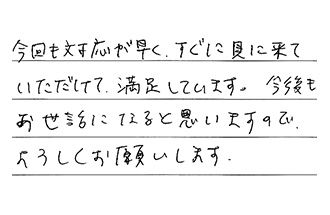 今回も対応が早く、すぐに見に来て
いただけて、満足しています。 今後も
お世話になると思いますので、
よろしくお願いします.